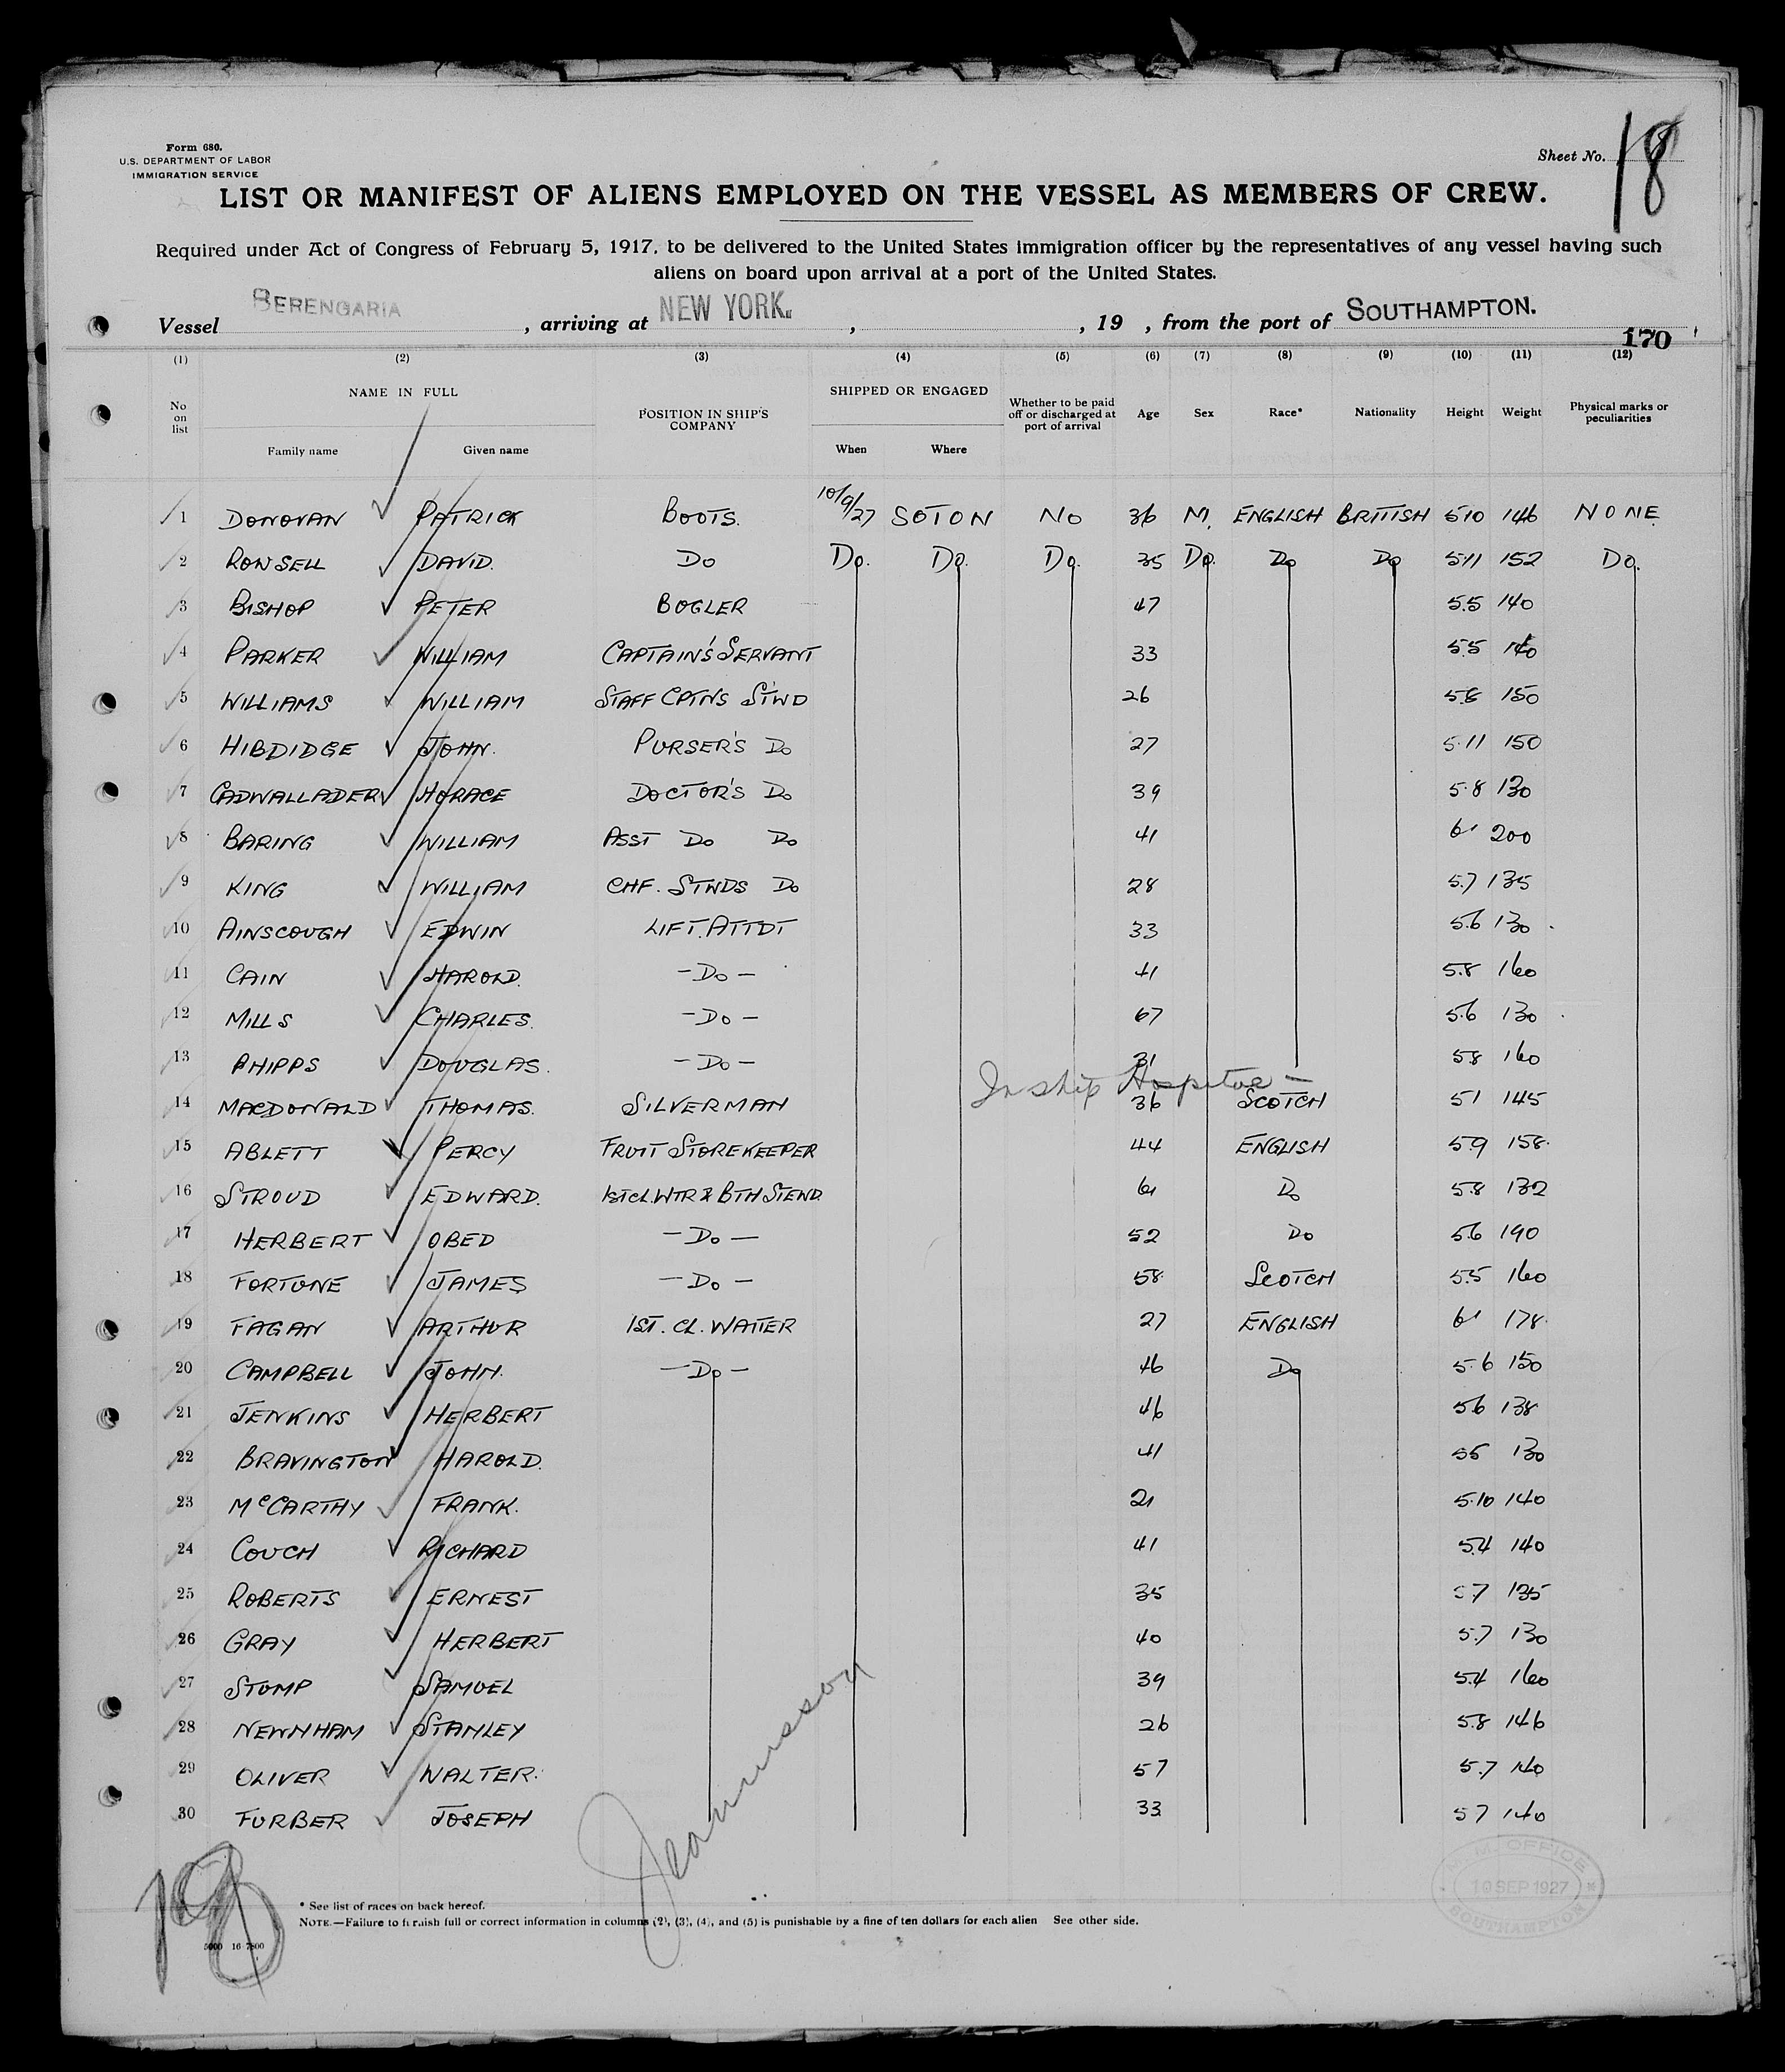 Form 680.
U.S. DEPARTMENT OF LABOR
IMMIGRATION SERVICE
Sheet No. 18
LIST OR MANIFEST OF ALIENS EMPLOYED ON THE VESSEL AS MEMBERS OF CREW.
Required under Act of Congress of February 5, 1917, to be delivered to the United States immigration officer by the representatives of any vessel having such
aliens on board upon arrival at a port of the United States.
Vessel BERENGARIA, arriving at NEW YORK., , 19 , from the port of SOUTHAMPTON.
170
(1) (2) (3) (4) (5) (6) (7) (8) (9) (10) (11) (12)
No on list NAME IN FULL Family name Given name POSITION IN SHIP'S COMPANY SHIPPED OR ENGAGED When Where Whether to be paid off or discharged at port of arrival Age Sex Race* Nationality Height Weight Physical marks or peculiarities
1 DONOVAN PATRICK BOOTS. 10/9/27 SOTON NO 36 M. ENGLISH BRITISH 510 146 NONE
2 RONSELL DAVID. DO DO. DO. DO. 35 DO. DO DO 5.11 152 DO.
3 BISHOP PETER BOGLER 47 5.5 140
4 PARKER WILLIAM CAPTAIN'S SERVANT 33 5.5 140
5 WILLIAMS WILLIAM STAFF CPTNS STWD 26 5.8 150
6 HIBDIDGE JOHN. PURSER'S DO 27 5.11 150
7 CADWALLADER HORACE DOCTOR'S DO 39 5.8 130
8 BARING WILLIAM ASST DO DO 41 6' 200
9 KING WILLIAM CHF. STWDS DO 28 5.7 135
10 AINSCOUGH EDWIN LIFT. ATTDT 33 5.6 130
11 CAIN HAROLD. -DO- 41 5.8 160
12 MILLS CHARLES. -DO- 67 5.6 130
13 PHIPPS DOUGLAS. -DO- 31 58 160
In ship Hospital -
14 MACDONALD THOMAS. SILVERMAN 36 SCOTCH 51 145
15 ABLETT PERCY FRUIT STOREKEEPER 44 ENGLISH 5.9 158.
16 STROUD EDWARD. 1ST CL. WTR & BTH STEWD. 61 DO 5.8 132
17 HERBERT OBED -DO- 52 DO 5.6 190
18 FORTUNE JAMES -DO- 58. SCOTCH 5.5 160
19 FAGAN ARTHUR 1ST. CL. WAITER 27 ENGLISH 6' 178.
20 CAMPBELL JOHN. -DO- 46 DO 5.6 150
21 JENKINS HERBERT 46 56 138
22 BRAVINGTON HAROLD. 41 55 130
23 McCARTHY FRANK. 21 5.10 140
24 COUCH RICHARD 41 5.4 140
25 ROBERTS ERNEST 35 57 135
26 GRAY HERBERT 40 5.7 130
27 STUMP SAMUEL 39 5.4 160
28 NEWNHAM STANLEY 26 5.8 146
29 OLIVER WALTER. 57 5.7 140
30 FURBER JOSEPH 33 57 140
M.M. OFFICE
10 SEP 1927
SOUTHAMPTON
* See list of races on back hereof.
NOTE.—Failure to furnish full or correct information in columns (2), (3), (4), and (5) is punishable by a fine of ten dollars for each alien See other side.